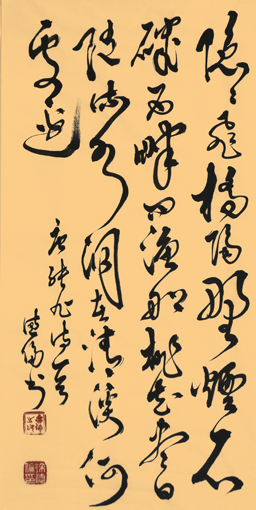 隐々飛橋隔野煙石
磯西畔问渔船桃花尽日
随流水洞在清溪何
处边
唐张旭诗一首
书